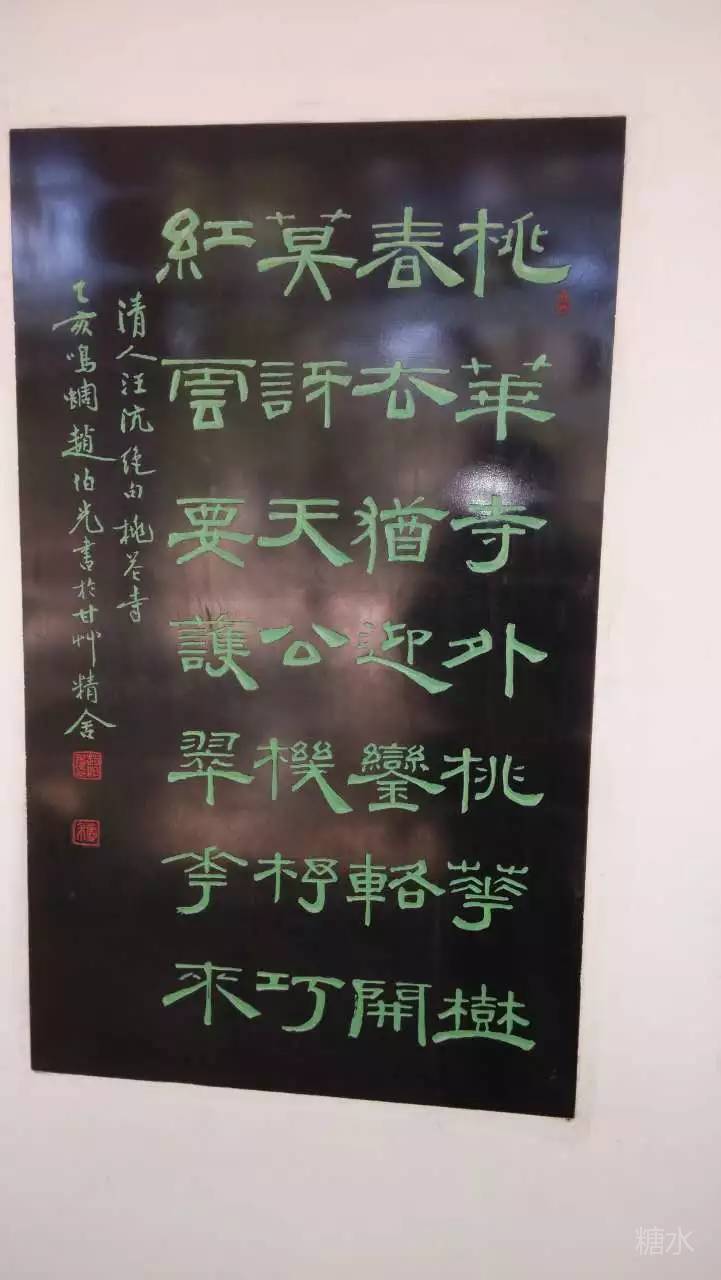 桃華寺外桃華樹
春去猶迎鑾輅開
莫訝天公機杼巧
紅雲要護翠華來
清人汪沆絕句桃花寺
乙亥鳴蜩趙伯光書於甘艸精舍
糖水